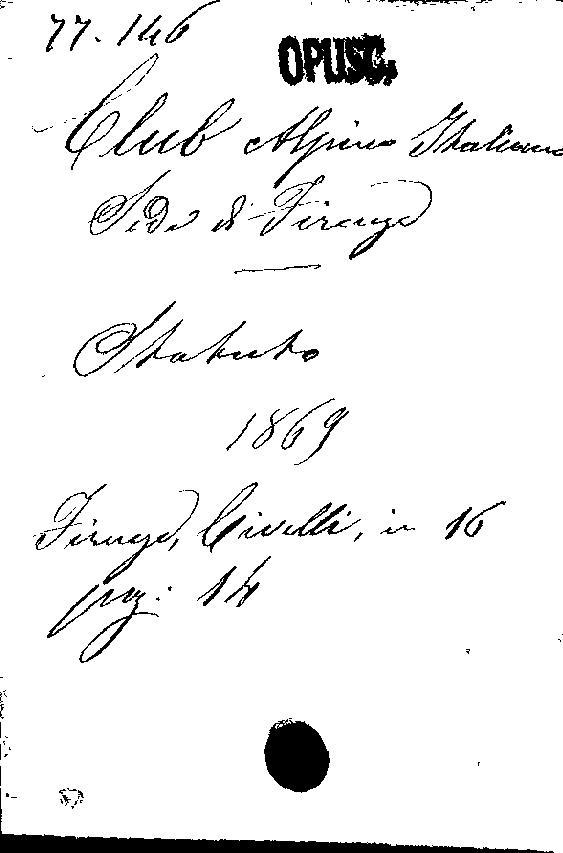 77.146
OPUSC.
Club Alpino Italiano
Sede di Firenze
Statuto
1869
Firenze, Civelli, in 16
pag. 14